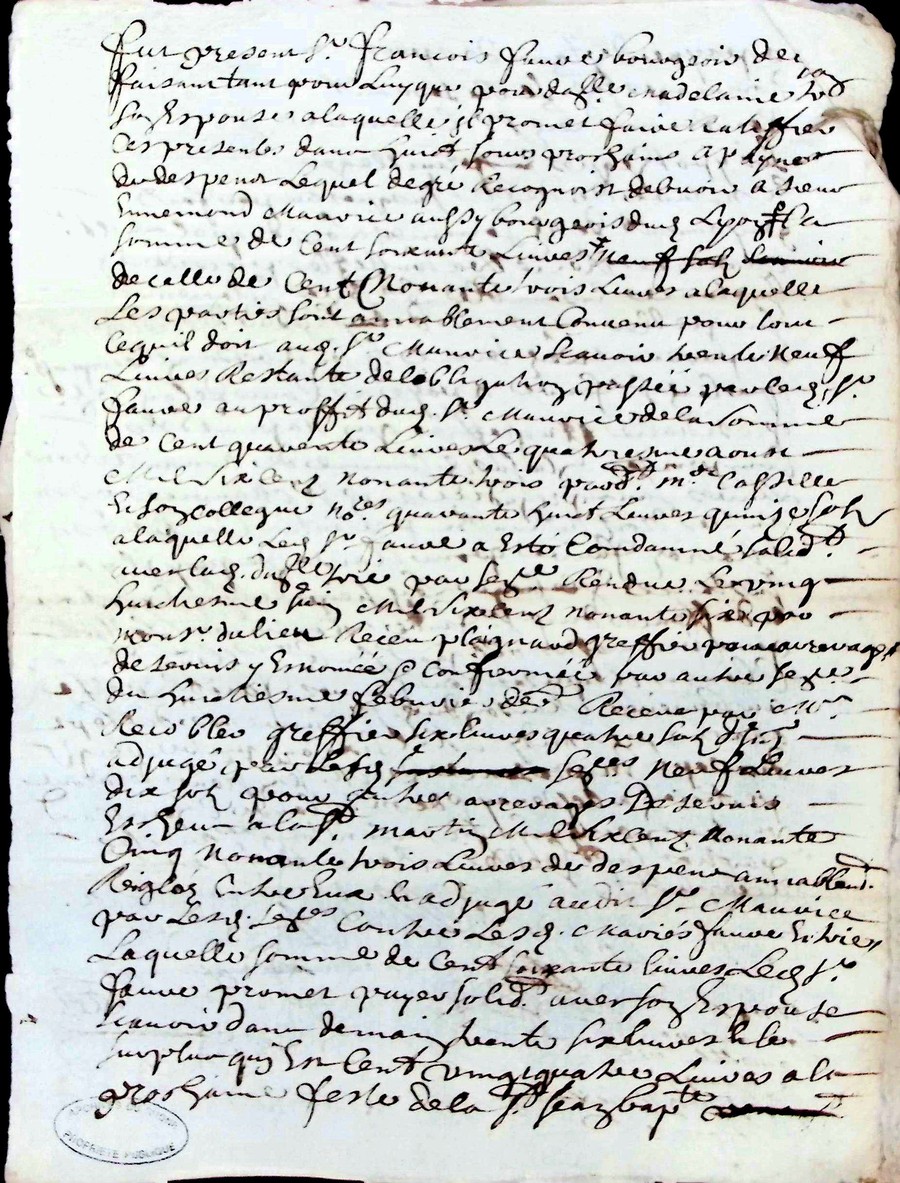 Fut present Sr. francois fauve bourgeois de
faisant tant pour Luy que pour dalle. madelaine
son Espouse a laquelle il promet faire ratiffier
ces presentes dans huict Jours prochains a p
du despens Lequel de gré Recognoist debvoir a sieur
Ennemond Maurice aussy bourgeois dud. Lyon la
somme de Cent soixante Livres neuf solz
de celle de Cent Nonante trois Livres a laquelle
Les parties sont amiablement Convenu pour tout
Ce quil doit aud. Sr. Maurice scavoir trente Neuf
Livres Restants de lobligation passée par led. Sr.
fauve au proffit dud. Sr. Maurice de la somme
de Cent quarante Livres Le quatriesme aoust
Mil six Cent nonante trois pard.t me. Cassille
Et son collegue nores. quarante huict Livres quinze solz
a laquelle Led. Sr. fauve a Esté Condamné solidt.
avec lad. dalle. par sexe. Rendue Le vingt
huictiesme Juin Mil six Cent nonante six par
monsr. du lieu Receu plaignard greffier pour arrerages
de servis y Enoncée & Confirmée par autre sexe.
du huictiesme febvrier de Receue par Mr.
Recobler greffier six livres quatre solz
adjugé par lesd. sexes Neuf Livres
dix solz pour autres arrerages De servis
Escheus a la St. martin Mil six Cent Nonante
Cinq nonante trois Livres de despens amiablemt.
Reiglez Entre Eux Et adjugé audit Sr. Maurice
par Lesd. sexes Contre Lesd. Mariés fauve Et
Laquelle somme de Cent soixante livres Led. Sr.
fauve promet payer solidt. avec son Espouse
scavoir dans demain trente six livres Et le
surplus quy Est Cent vingt quatre Livres a la
prochaine feste de la St. Jean bapte
PROPRIETE PUBLIQUE